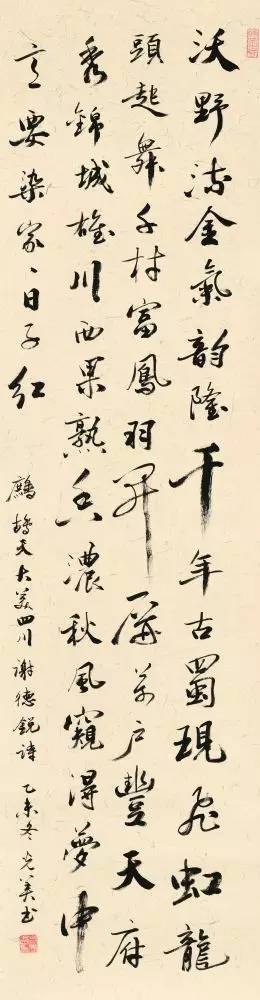 沃野流金氣韵隆千年古蜀現飛虹龍
頭起舞千村富鳳羽開屏萬户豐天府
秀錦城雄川西果熟濃秋風窺得夢中
意要染家々日子紅
鷓鴣天大美四川 謝德銳詩 乙未冬 光美书